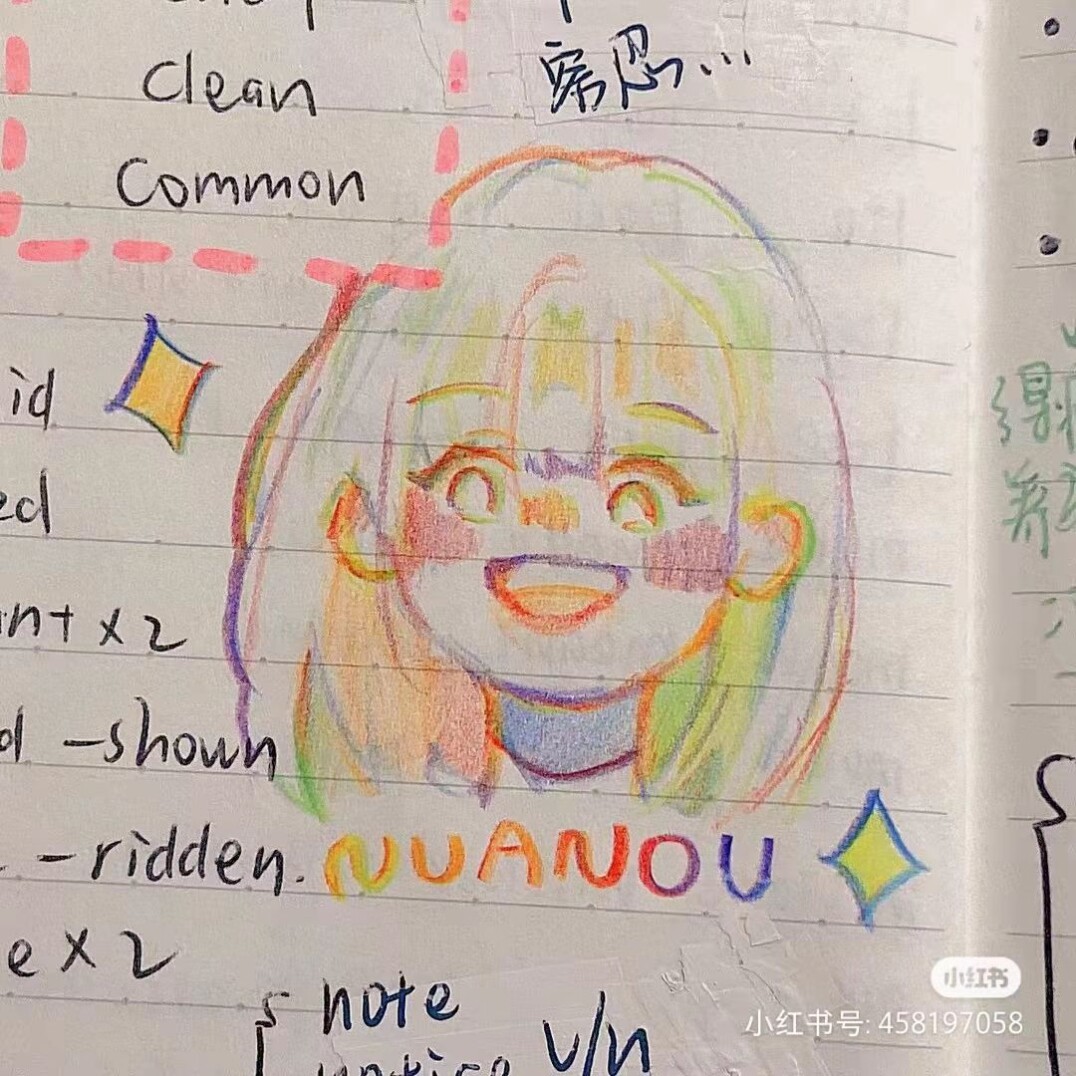 Clean
Common
容忍...
id
ed
int x2
d -shown
-ridden.
NUANOU
e x2
note
notice
v/n
小红书
小红书号: 458197058